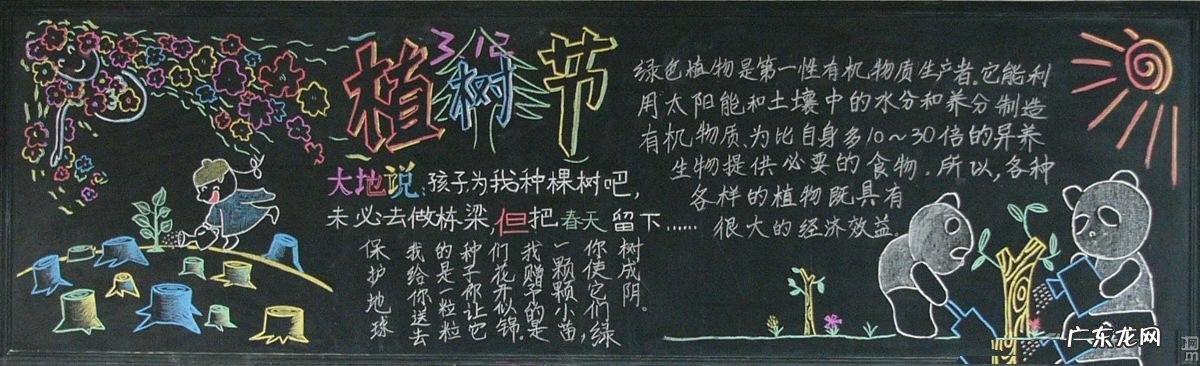 3.12
植树节
大地说:孩子为我种棵树吧,
未必去做栋梁,但把春天留下……
保护地球
我给你送去
的是一粒粒
种子你让它
们花开似锦。
我赠予的是
一颗颗小苗,
你使它们绿
树成阴。
绿色植物是第一性有机物质生产者.它能利
用太阳能和土壤中的水分和养分制造
有机物质.为比自身多10～30倍的异养
生物提供必要的食物.所以,各种
各样的植物既具有
很大的经济效益.
广东龙网